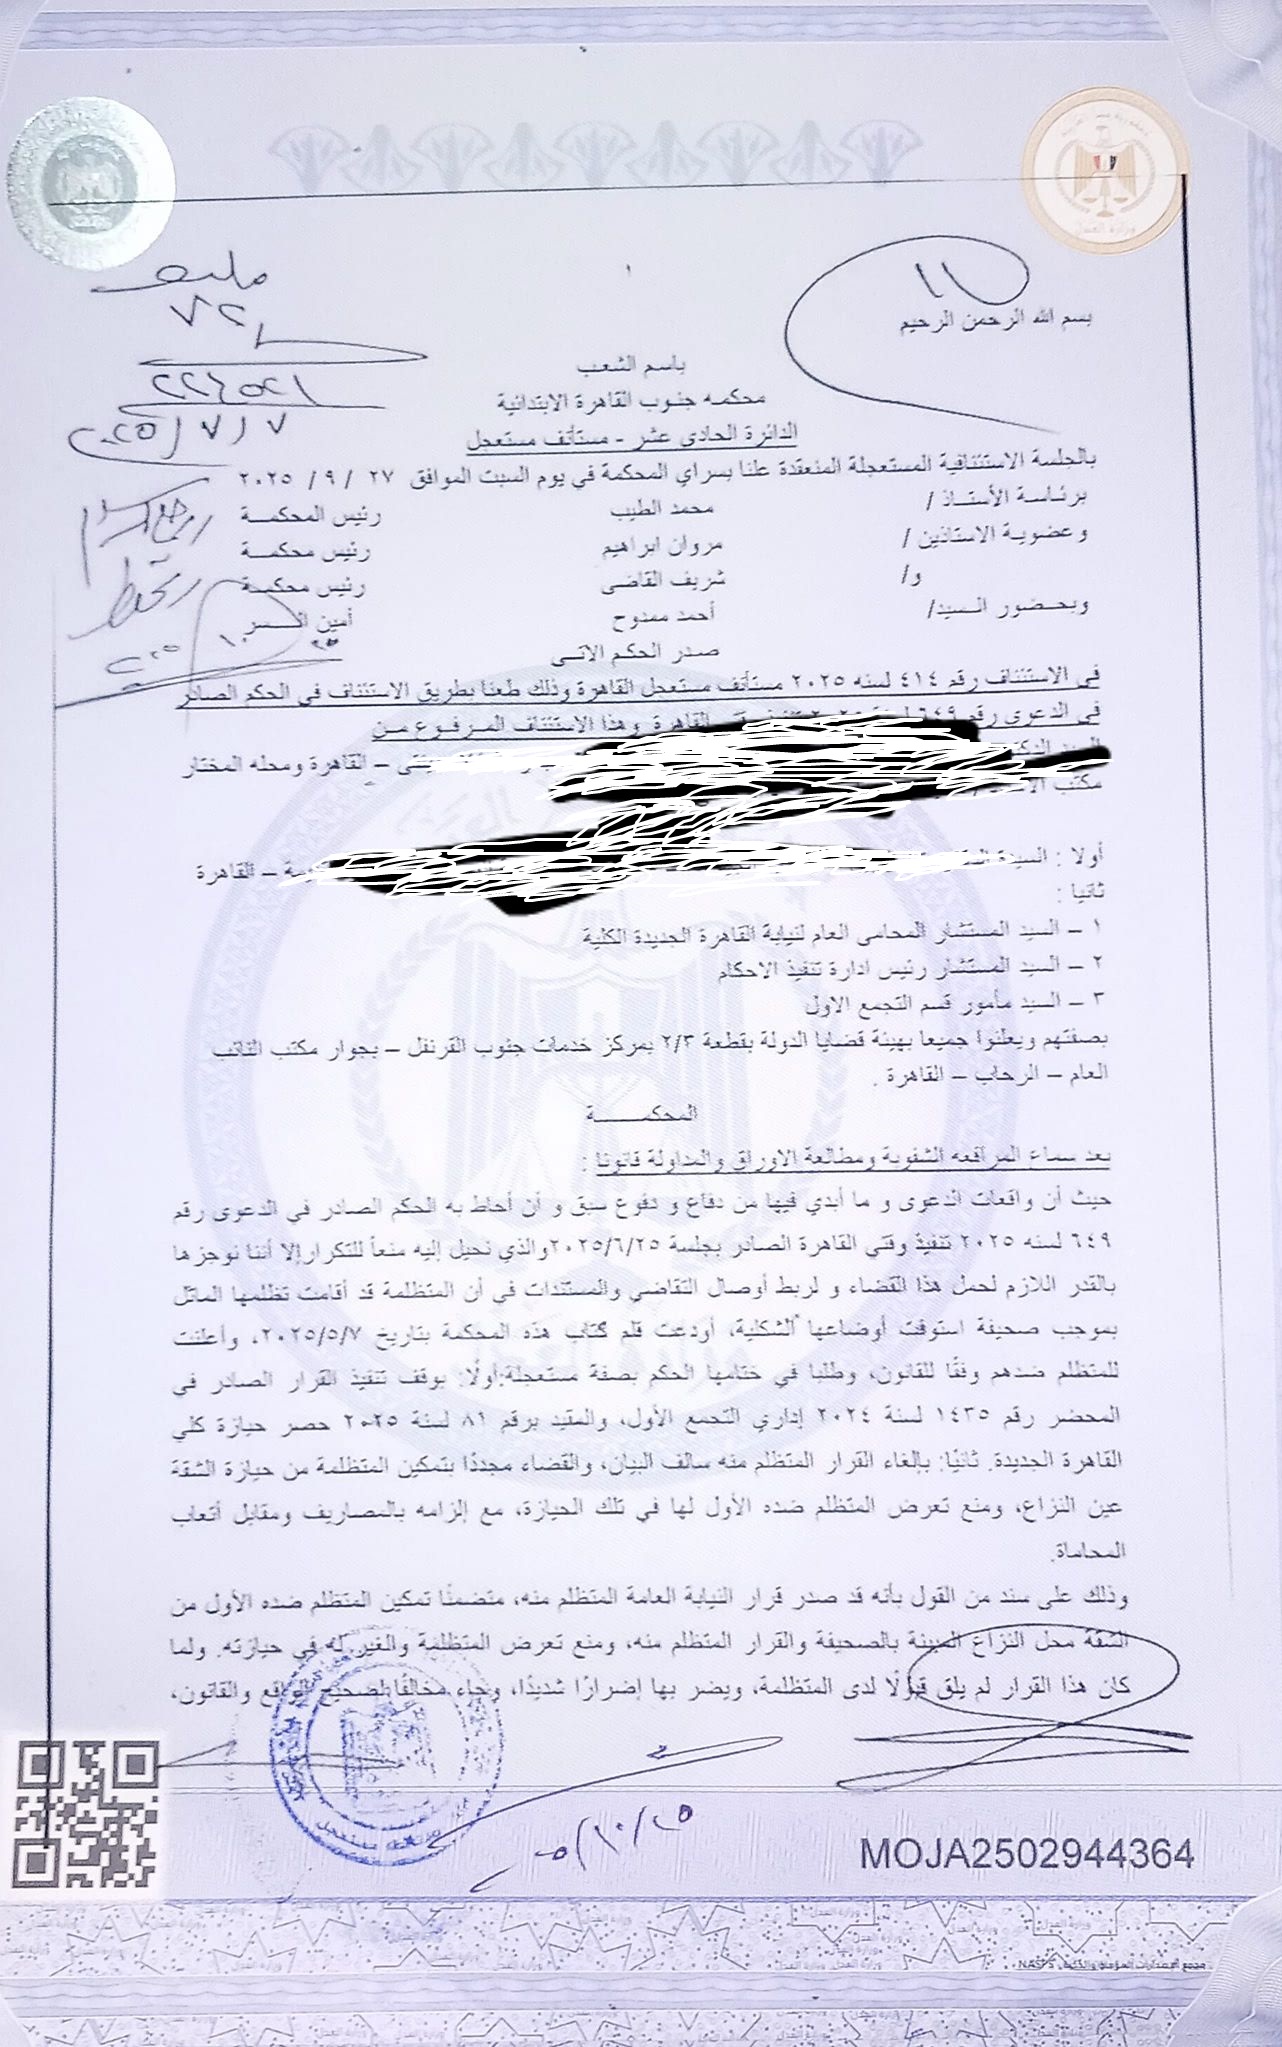 بسم الله الرحمن الرحيم
باسم الشعب
محكمه جنوب القاهرة الابتدائية
الدائرة الحادى عشر - مستأنف مستعجل
بالجلسة الاستئنافية المستعجلة المنعقدة علنا بسراي المحكمة في يوم السبت الموافق ٢٧ / ٩ / ٢٠٢٥
برئاسة الأستاذ / محمد الطيب رئيس المحكمة
وعضوية الاستاذين / مروان ابراهيم رئيس محكمة
و/ شريف القاضى رئيس محكمة
وبحضور السيد/ أحمد ممدوح أمين السر
صدر الحكم الاتى
فى الاستئناف رقم ٤١٤ لسنه ٢٠٢٥ مستأنف مستعجل القاهرة وذلك طعنا بطريق الاستئناف فى الحكم الصادر
فى الدعوى رقم ٦٤٩ القاهرة وهذا الاستئناف المرفوع من
السيد – القاهرة ومحله المختار
مكتب
أولا : السيدة – القاهرة
ثانيا :
١ – السيد المستشار المحامى العام لنيابة القاهرة الجديدة الكلية
٢ – السيد المستشار رئيس ادارة تنفيذ الاحكام
٣ – السيد مأمور قسم التجمع الاول
بصفتهم ويعلنوا جميعا بهيئة قضايا الدولة بقطعة ٢/٣ بمركز خدمات جنوب القرنفل – بجوار مكتب النائب
العام – الرحاب – القاهرة .
المحكمة
بعد سماع المرافعه الشفوية ومطالعة الاوراق والمداولة قانونا :
حيث أن واقعات الدعوى و ما أبدي فيها من دفاع و دفوع سبق و أن أحاط به الحكم الصادر في الدعوى رقم
٦٤٩ لسنه ٢٠٢٥ تنفيذ وقتى القاهرة الصادر بجلسة ٢٠٢٥/٦/٢٥ والذي نحيل إليه منعاً للتكرار إلا أننا نوجزها
بالقدر اللازم لحمل هذا القضاء و لربط أوصال التقاضي والمستندات في أن المتظلمة قد أقامت تظلمها الماثل
بموجب صحيفة استوفت أوضاعها الشكلية، أودعت قلم كتاب هذه المحكمة بتاريخ ٢٠٢٥/٥/٧، وأعلنت
للمتظلم ضدهم وفقًا للقانون، وطلبا في ختامها الحكم بصفة مستعجلة: أولًا: بوقف تنفيذ القرار الصادر في
المحضر رقم ١٤٣٥ لسنة ٢٠٢٤ إداري التجمع الأول، والمقيد برقم ٨١ لسنة ٢٠٢٥ حصر حيازة كلي
القاهرة الجديدة. ثانيًا: بإلغاء القرار المتظلم منه سالف البيان، والقضاء مجددًا بتمكين المتظلمة من حيازة الشقة
عين النزاع، ومنع تعرض المتظلم ضده الأول لها في تلك الحيازة، مع إلزامه بالمصاريف ومقابل أتعاب
المحاماة.
وذلك على سند من القول بأنه قد صدر قرار النيابة العامة المتظلم منه، متضمنًا تمكين المتظلم ضده الأول من
الشقة محل النزاع المبينة بالصحيفة والقرار المتظلم منه، ومنع تعرض المتظلمة والغير له في حيازته. ولما
كان هذا القرار لم يلق قبولًا لدى المتظلمة، ويضر بها إضرارًا شديدًا، وجاء مخالفًا لصحيح الواقع والقانون،
MOJA2502944364